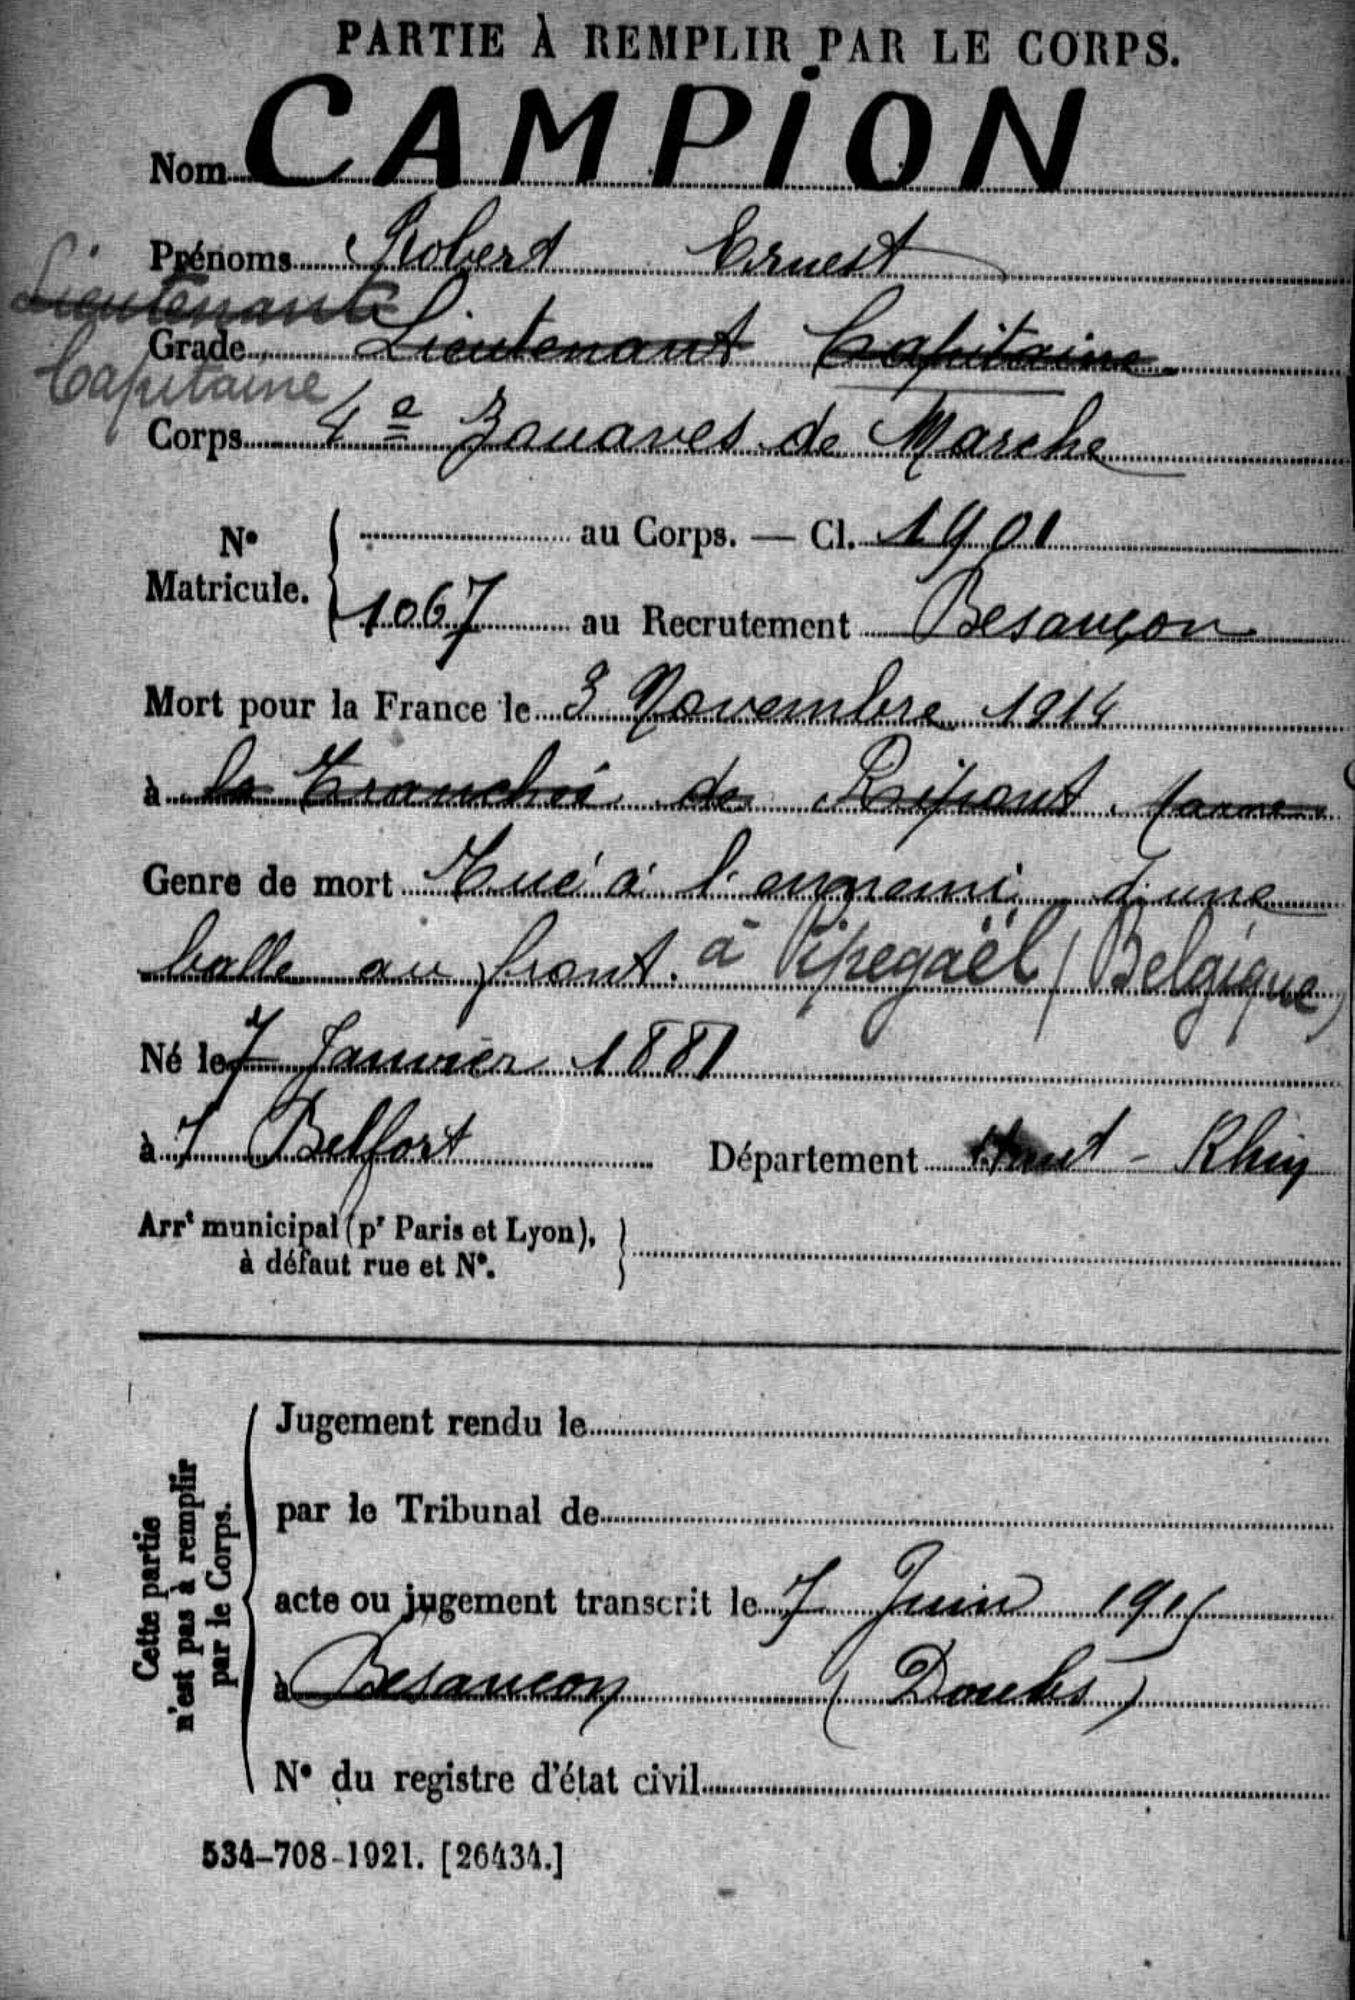 PARTIE À REMPLIR PAR LE CORPS.
Nom CAMPION
Prénoms Robert Ernest
Lieutenant
Grade Lieutenant Capitaine
Capitaine
Corps 4e Zouaves de Marche
N° Matricule. { au Corps. — Cl. 1901
1067 au Recrutement Besançon
Mort pour la France le 3 Novembre 1914
à la Tranchée de Ripont Marne
Genre de mort Tué à l'ennemi d'une
balle au front. à Pipegaël (Belgique)
Né le 7 Janvier 1881
à Belfort Département Haut-Rhin
Arrt municipal (pr Paris et Lyon),
à défaut rue et N°.
Cette partie
n'est pas à remplir
par le Corps.
Jugement rendu le
par le Tribunal de
acte ou jugement transcrit le 7 Juin 1915
à Besançon (Doubs)
N° du registre d'état civil
534-708-1921. [26434.]